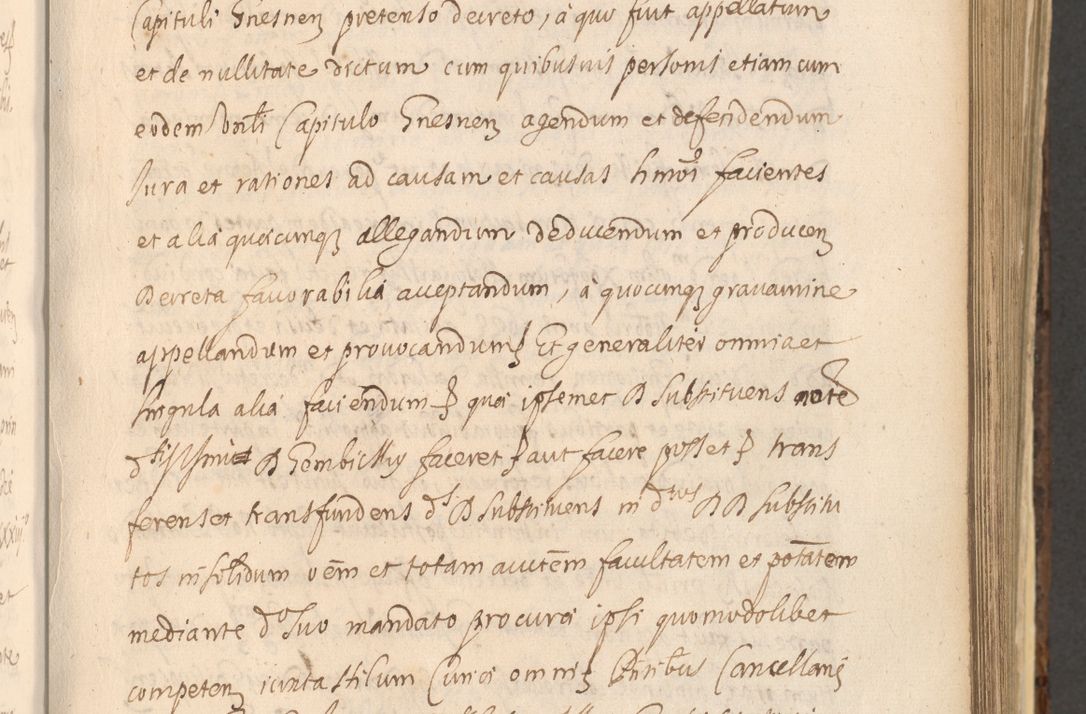 Capituli Gnesnen pretenso decreto, à quo fuit appellatum
et de nullitate dictum cum quibusuis personis etiam cum
eodem Vnli Capitulo Gnesnen agendum et defendendum
Iura et rationes ad causam et causas hmoi facientes
et alia quæcunq allegandum deducendum et producen
Decreta favorabilia acceptandum, à quocunq gravamine
appellandum et provocandum Et generaliter omnia et
singula alia faciendum quæ ipsemet D Substituens note
D Gembicky faceret aut facere posset trans
ferens et transfundens ds D Substituens in dtos DD Substitu
tos insolidum oem et totam auctem facultatem et potatem
mediante do suo mandato procuræ ipsi quomodolibet
competen iuxta stilum Curiæ omnis Cancellariæ